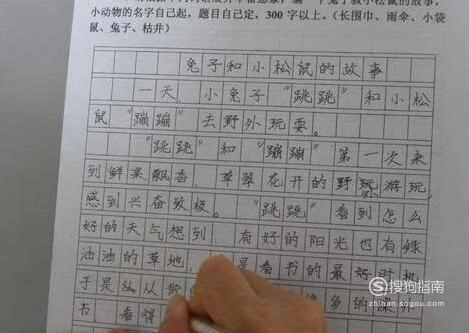 小动物的名字自己起，题目自己定，300字以上。（长围巾、雨伞、小袋
鼠、兔子、枯井）
兔子和小松鼠的故事
一天，小兔子“跳跳”和小松
鼠“蹦蹦”去野外玩耍。
“跳跳”和“蹦蹦”第一次来
到鲜果飘香、草翠花开的野外游玩，
感到兴奋致极。“跳跳”看到怎么
好的天气想到：有好的阳光也有绿
油油的草地，是看书的最好时机
于是从
书 看得
搜狗指南
zhinan.sogou.com